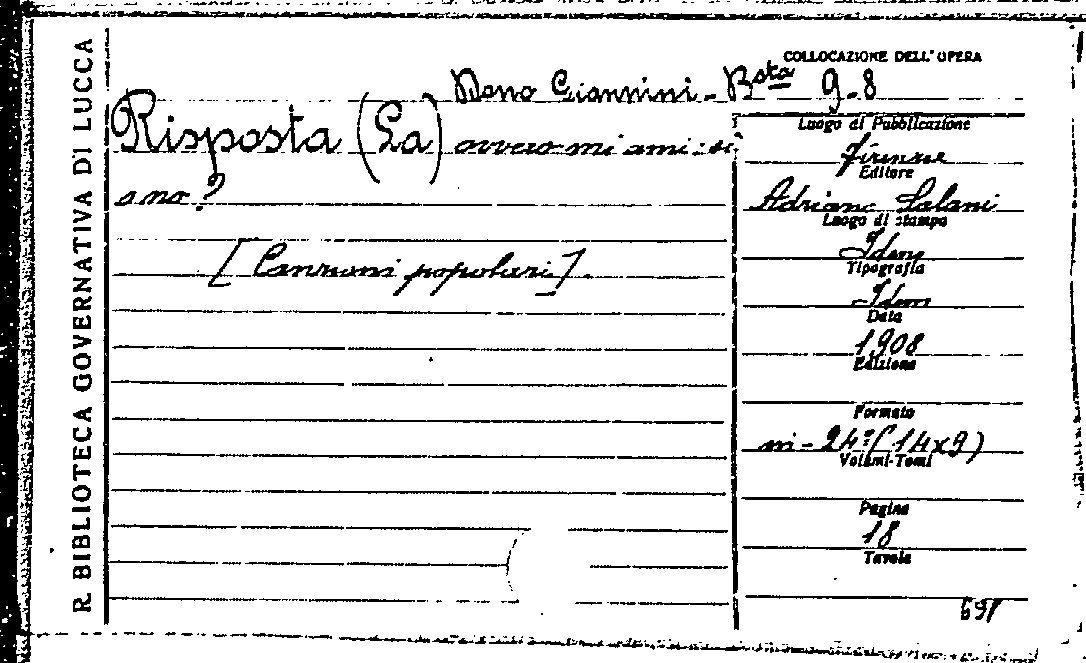 R. BIBLIOTECA GOVERNATIVA DI LUCCA
COLLOCAZIONE DELL'OPERA
Dono Giannini - Bsta 9-8
Risposta (La) ovvero mi ami: si
o no?
[Canzoni popolari].
Luogo di Pubblicazione
Firenze
Editore
Adriano Salani
Luogo di stampa
Idem
Tipografia
Idem
Data
1908
Edizione
Formato
in-24º (14x9)
Volumi-Tomi
Pagine
18
Tavole